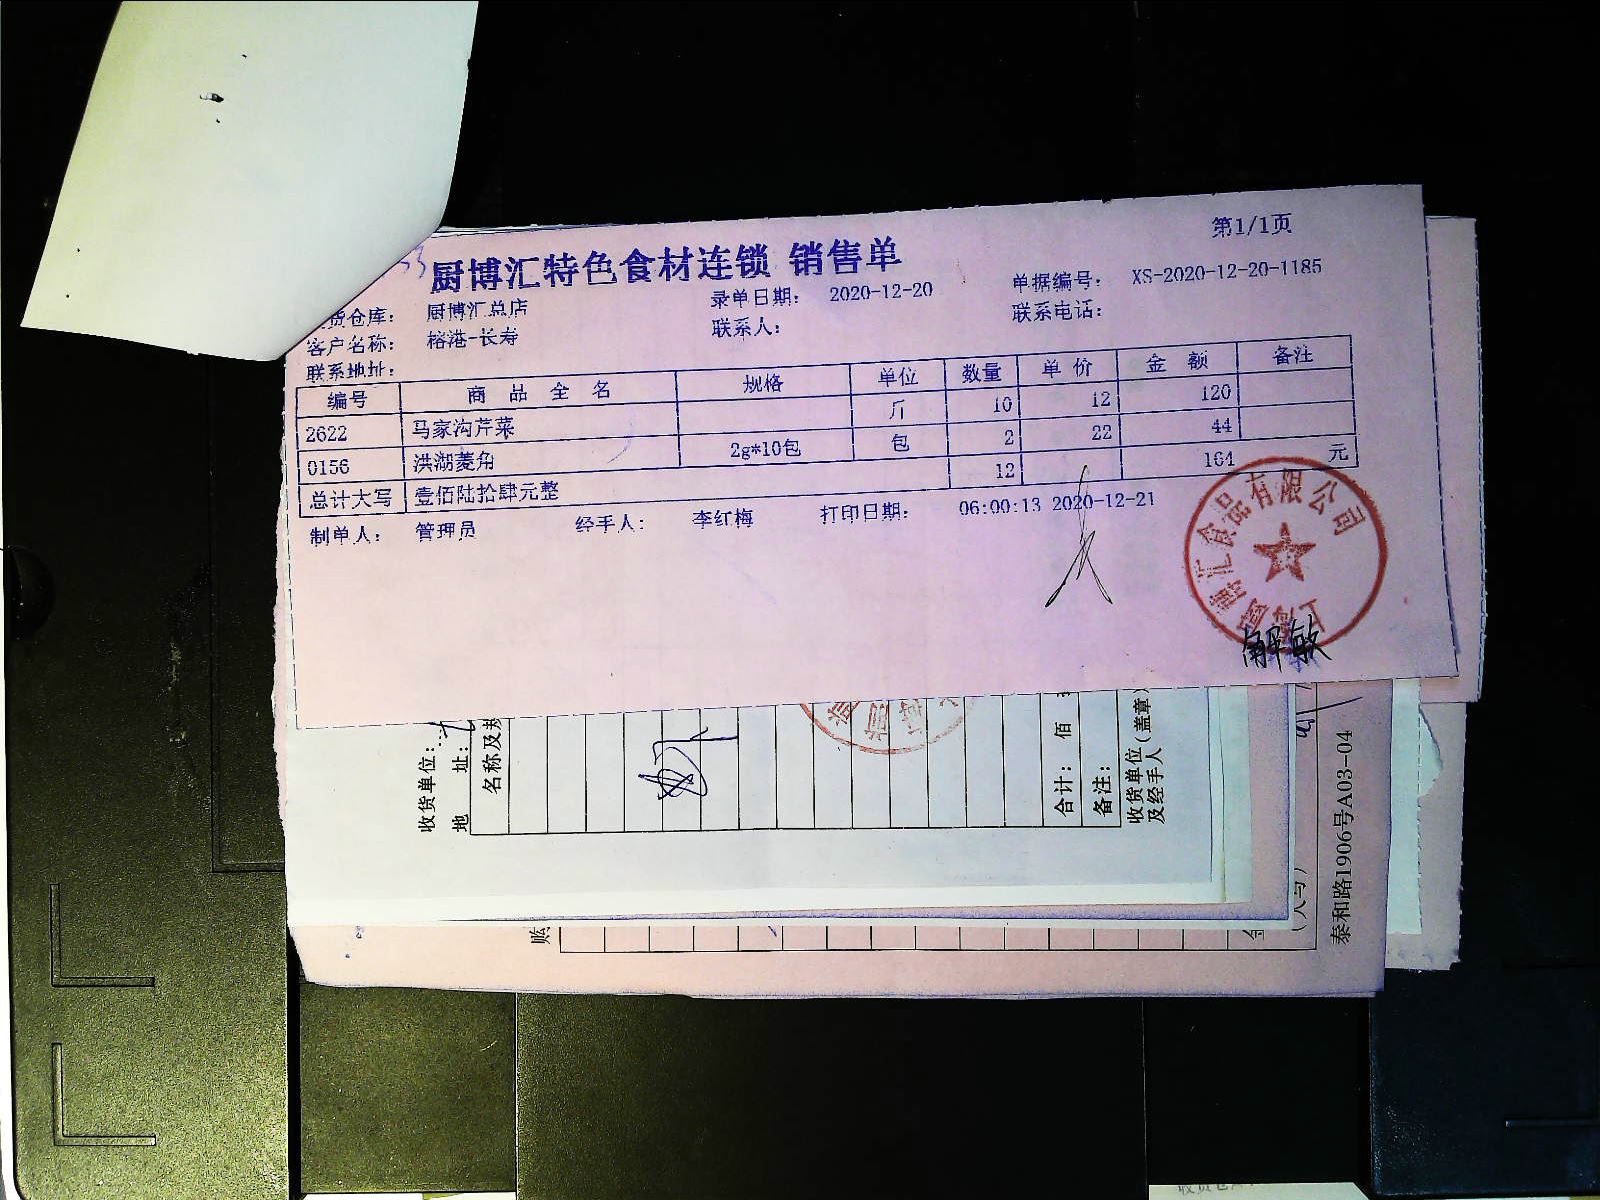 第1/1页
厨博汇特色食材连锁 销售单
货仓库： 厨博汇总店 录单日期： 2020-12-20 单据编号： XS-2020-12-20-1185
客户名称： 榕港-长寿 联系人： 联系电话：
联系地址：
编号 商品全名 规格 单位 数量 单价 金额 备注
2622 马家沟芹菜 斤 10 12 120
0156 洪湖菱角 2g*10包 包 2 22 44
总计大写 壹佰陆拾肆元整 12 164 元
制单人： 管理员 经手人： 李红梅 打印日期： 06:00:13 2020-12-21
上海厨博汇食品有限公司
解敏
收货单位：
地 址：
名称及规
合计： 佰
备注：
收货单位（盖章）
及经手人
泰和路1906号A03-04